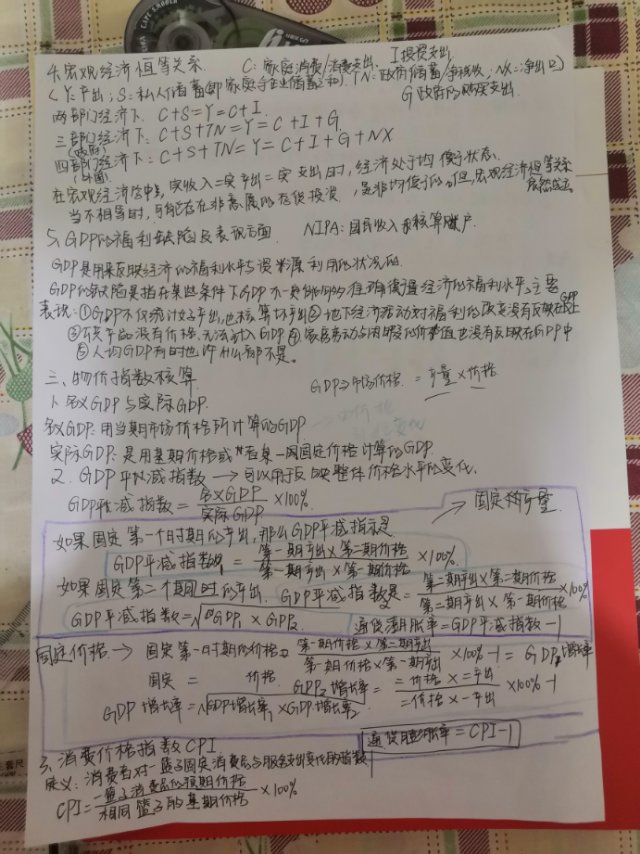 4.宏观经济恒等关系. C:家庭消费/消费支出. I投资支出
(Y:产出; S:私人储蓄(即家庭与企业储蓄之和). TN:政府储蓄/净税收; NX=净出口)
G 政府的购买支出.
两部门经济下: C+S=Y=C+I.
三部门经济下: C+S+TN=Y=C+I+G
(政府)
四部门经济下: C+S+TN=Y=C+I+G+NX
(外国)
在宏观经济学中, 实收入=实产出=实支出时, 经济处于均衡状态.
当不相等时, 可能存在非意愿的存货投资, 是非均衡的. 但, 宏观经济恒等关系
居然成立
5. GDP的福利缺陷及表现方面. NIPA:国民收入和核算账户.
GDP是用来反映经济的福利水平与资源利用的状况的.
GDP的缺陷是指在某些条件下GDP不一定能够的准确衡量经济的福利水平. 主要
表现:①GDP不仅统计好产出,也核算坏产出②地下经济活动对福利的改变没有反映在GDP上
③有关产品没有价格, 无法计入GDP④家庭劳动与闲暇的价值也没有反映在GDP中
⑤人均GDP有时也许什么都不是.
三、物价指数核算. GDP=市场价格. =产量×价格
1. 名义GDP与实际GDP.
名义GDP:用当期市场价格所计算的GDP
实际GDP:是用基期价格或者某一固定价格计算的GDP.
2. GDP平减指数 → 可以用于反映整体价格水平的变化.
GDP平减指数=名义GDP/实际GDP×100%. → 固定的产量
如果固定第一个时期的产出, 那么GDP平减指数是
GDP平减指数1=第一期产出×第二期价格/第一期产出×第一期价格×100%.
如果固定第二个时期的产出. GDP平减指数2=第二期产出×第二期价格/第二期产出×第一期价格×100%
GDP平减指数=√GDP1×GDP2. 通货膨胀率=GDP平减指数-1
固定价格→ 固定第一时期的价格= 第一期价格×第二期产出/第一期价格×第一期产出×100%-1=GDP1增长率
固定二价格 GDP2增长率=二价格×二产出/二价格×一产出×100%-1
GDP增长率=√GDP增长率1×GDP增长率2.
通货膨胀率=CPI-1
3.消费价格指数CPI.
定义:消费者对一篮子固定消费品与服务支出变化的指数
CPI=一篮子消费品的现期价格/相同篮子的基期价格×100%